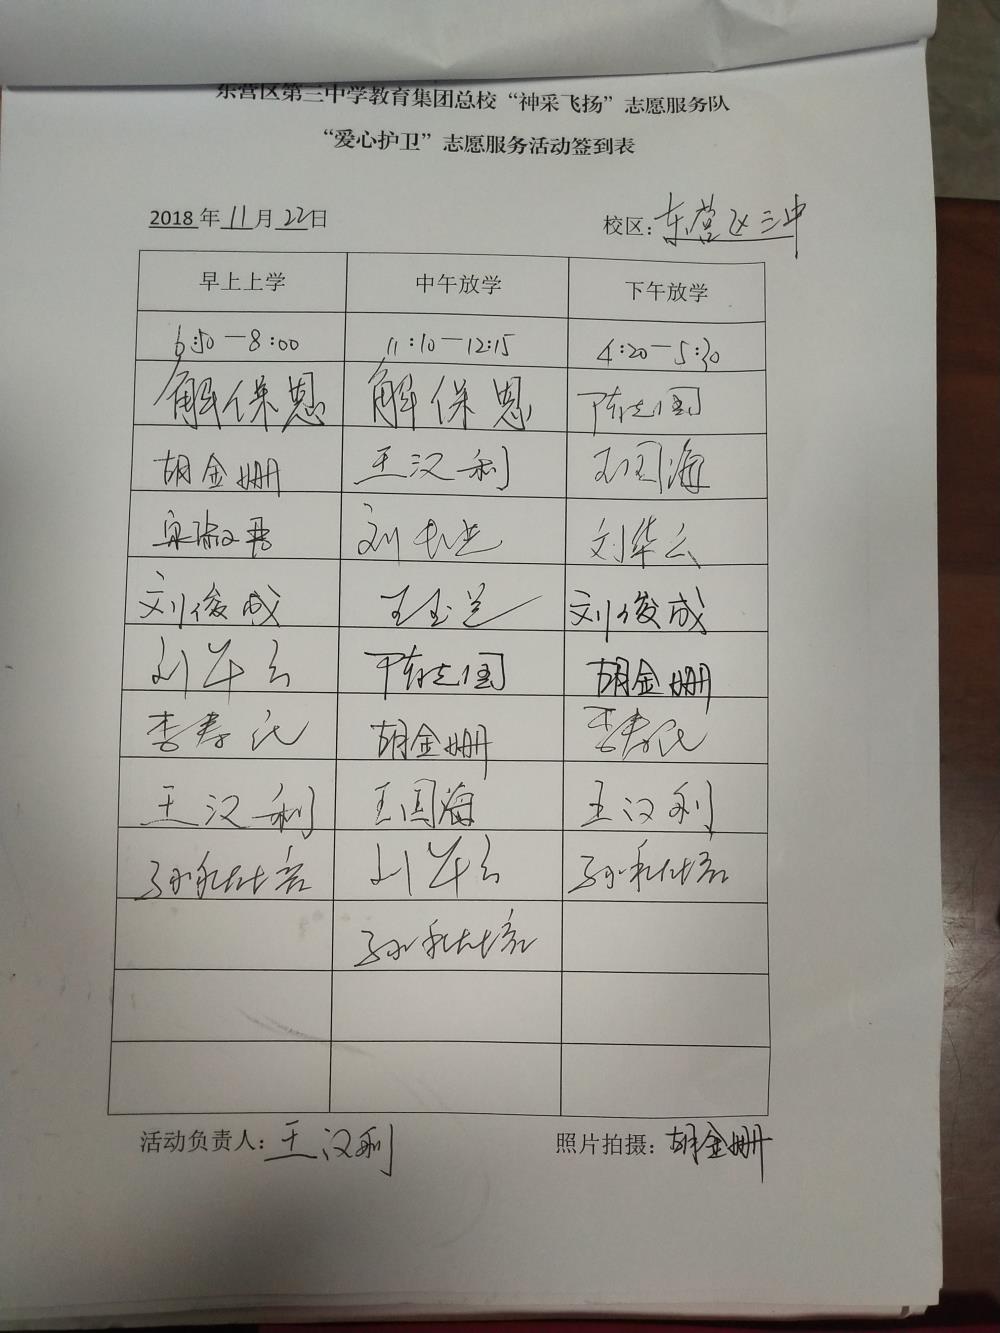 东营区第三中学教育集团总校“神采飞扬”志愿服务队
“爱心护卫”志愿服务活动签到表
2018年11月22日 校区：东营区三中
早上上学 中午放学 下午放学
6:50—8:00 11:10—12:15 4:20—5:30
解保恩 解保恩
胡金珊 王汉利 王国海
刘华云
刘俊成 王玉兰 刘俊成
刘华云 胡金珊
李寿民 胡金珊 李寿民
王汉利 王国海 王汉利
刘华云
活动负责人：王汉利 照片拍摄：胡金珊